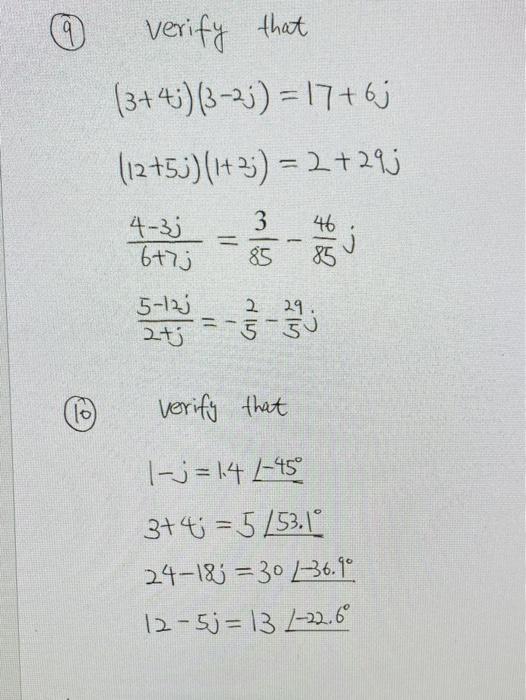 ⑨ verify that
(3+4j)(3-2j) = 17+6j
(12+5j)(1+2j) = 2+29j
4-3j/6+7j = 3/85 - 46/85 j
5-12j/2+j = -2/5 - 29/5 j
⑩ verify that
1-j = 1.4 ∠-45°
3+4j = 5 ∠53.1°
24-18j = 30 ∠-36.9°
12-5j = 13 ∠-22.6°